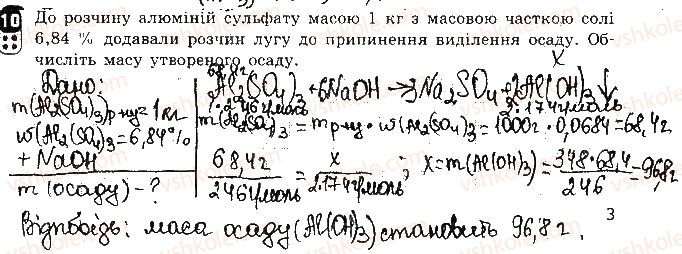 10 До розчину алюміній сульфату масою 1 кг з масовою часткою солі
6,84 % додавали розчин лугу до припинення виділення осаду. Об-
числіть масу утвореного осаду.
Дано:
m(Al₂(SO₄)₃)р-ну=1кг
w(Al₂(SO₄)₃=6,84%
+ NaOH
m(осаду) - ?
68,4г x
Al₂(SO₄)₃+6NaOH→3Na₂SO₄+2Al(OH)₃↓
m(Al₂(SO₄)₃=mр-ну·w(Al₂(SO₄)₃=1000г·0,0684=68,4г
68,4г/246г/моль = x/2·174г/моль ; x=m(Al(OH)₃)=348·68,4/246=96,8г
Відповідь: маса осаду (Al(OH)₃) становить 96,8г.
3